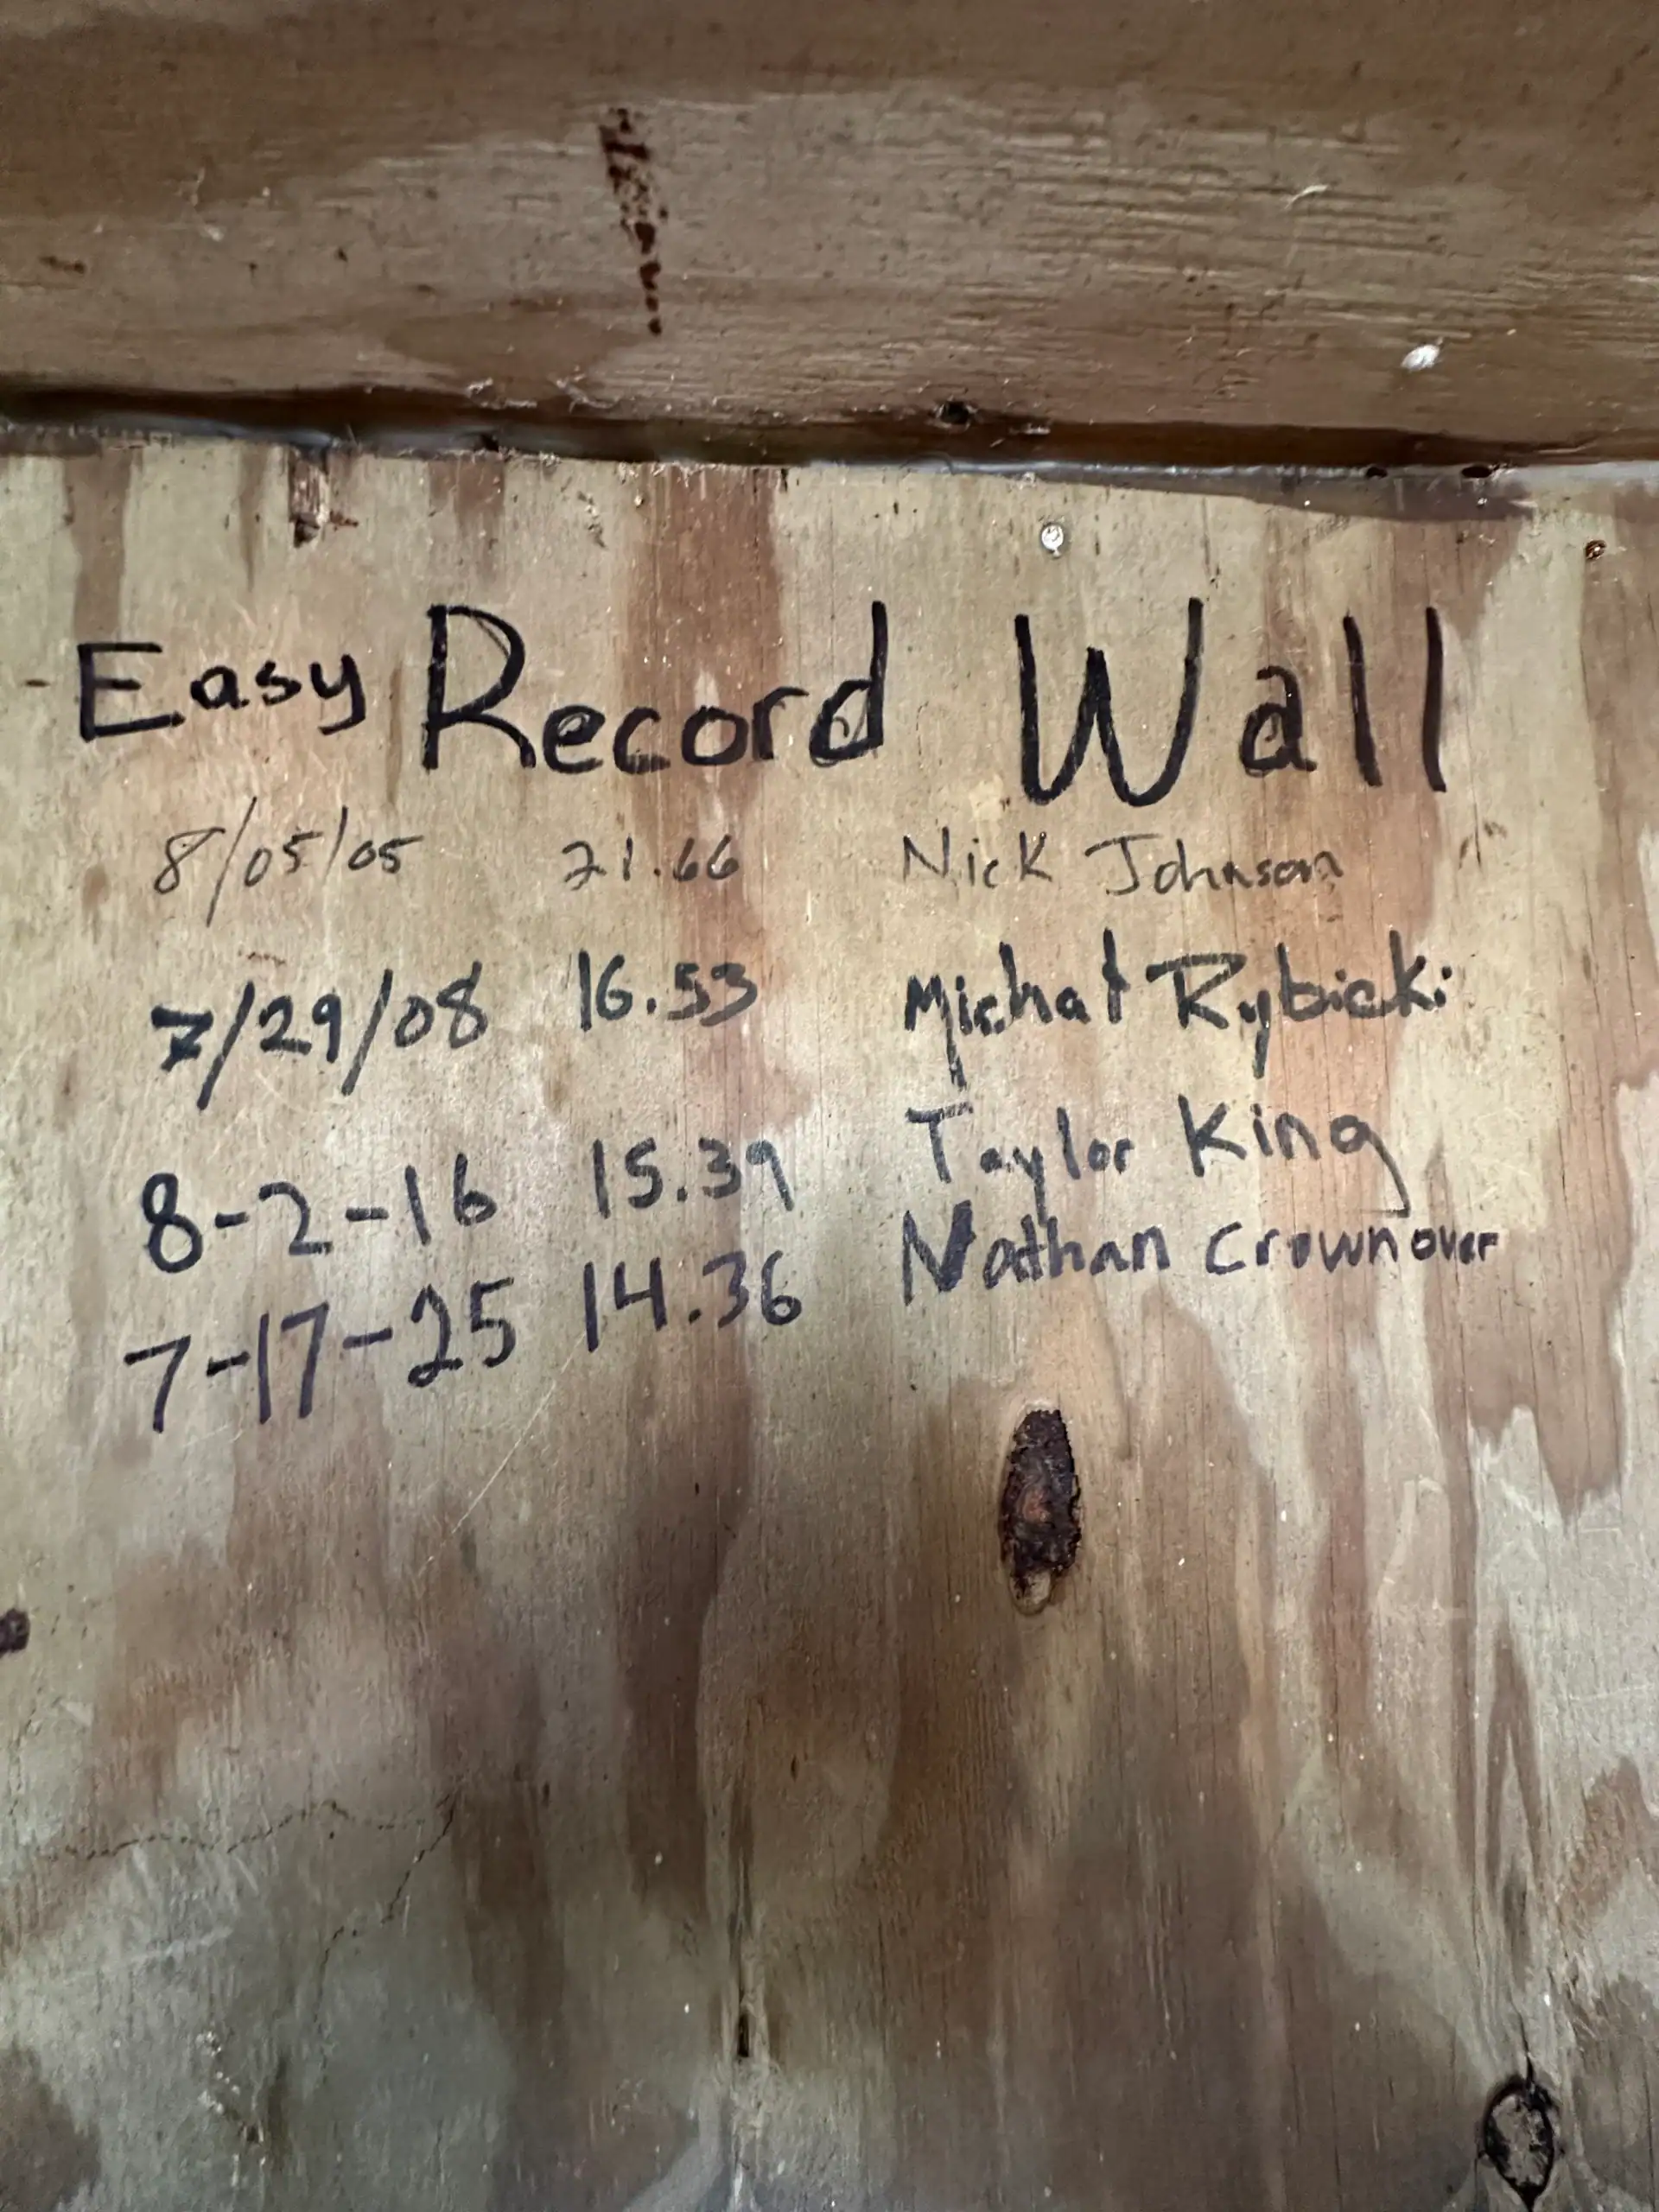 Easy Record Wall
8/05/05 21.66 Nick Johnson
7/29/08 16.53 Michał Rybicki
8-2-16 15.39 Taylor King
7-17-25 14.36 Nathan Crownover